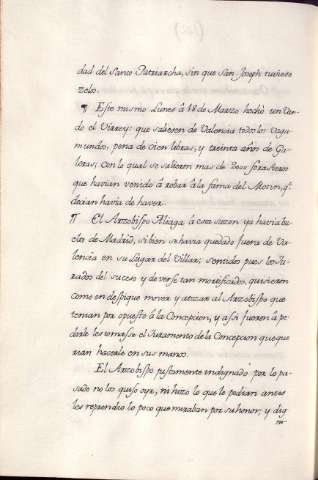 dad del Santo Patriarcha, sin que San Joseph tuviese
zelos.
¶ Este mismo Lunes à 18 de Marzo hechò un Van-
do el Virrey: que saliesen de Valencia todos los Vaga-
mundos, pena de cien lebras, y treinta años de Ga-
leras; con lo qual se salieron mas de 2000 forasteros
que havian venido à robar à la fama del Motin, q.^e
decian havia de haver.
¶ El Arzobispo Aliaga à esta sazon ya havia bu-
elto de Madrid, si bien se havia quedado fuera de Va-
lencia en su Lugar del Villar; sentidos pues los Ju-
rados del suceso y de verse tan mortificados, quisieron
como en despique mover y atizar al Arzobispo que
tenian por opuesto à la Concepcion, y assi fueron à pe-
dirle les tomasse el Juramento de la Concepcion que que-
rian hacerle en sus manos.
El Arzobispo justamente indignado por lo pa-
sado no los quiso oyr, ni hizo lo que le pedian antes
los reprendio lo poco que miraban por su honor, y dig
ni-